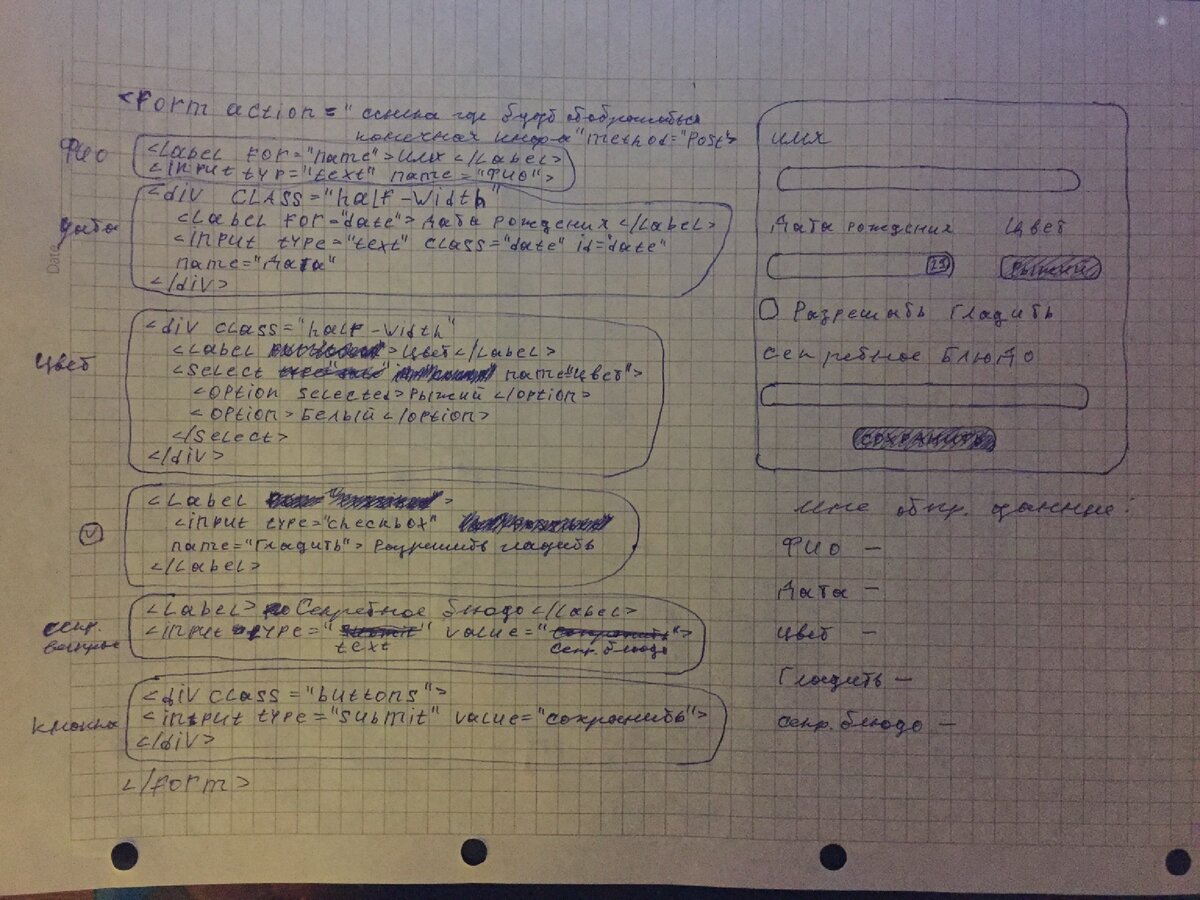 <Form action="ссылка где будет отображаться
конечная инфа" method="Post">
ФИО
<Label For="name">имя</Label>
<input typ="text" name="ФИО">
<div CLASS="half-Width"
Дата
<Label For="date">Дата рождения</Label>
<input type="text" class="date" id="date"
name="Дата"
</div>
<div class="half-Width"
Цвет
<Label >Цвет</Label>
<Select name"Цвет">
<option selected>Рыжий</option>
<option>Белый</option>
</Select>
</div>
<Label >
<input type="checkbox"
name="Гладить">Разрешить гладить
</Label>
<Label> Секретное блюдо</Label>
секр.
вопрос
<input type=" " value=" ">
text секр. блюдо
<div class="buttons">
кнопка
<input type="submit" value="сохранить">
</div>
</form>
имя
Дата рождения Цвет
23 Рыжий
Разрешить Гладить
секретное Блюдо
сохранить
мне обр. данные:
ФИО –
Дата –
цвет –
Гладить –
секр. блюдо –
Data